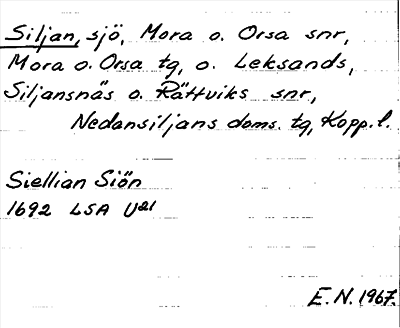 Siljan, sjö, Mora o. Orsa snr,
Mora o. Orsa tg, o. Leksands,
Siljansnäs o. Rättviks snr,
Nedansiljans doms. tg, Kopp. l.
Siellian Siön
1692 LSA U21
E.N. 1967.